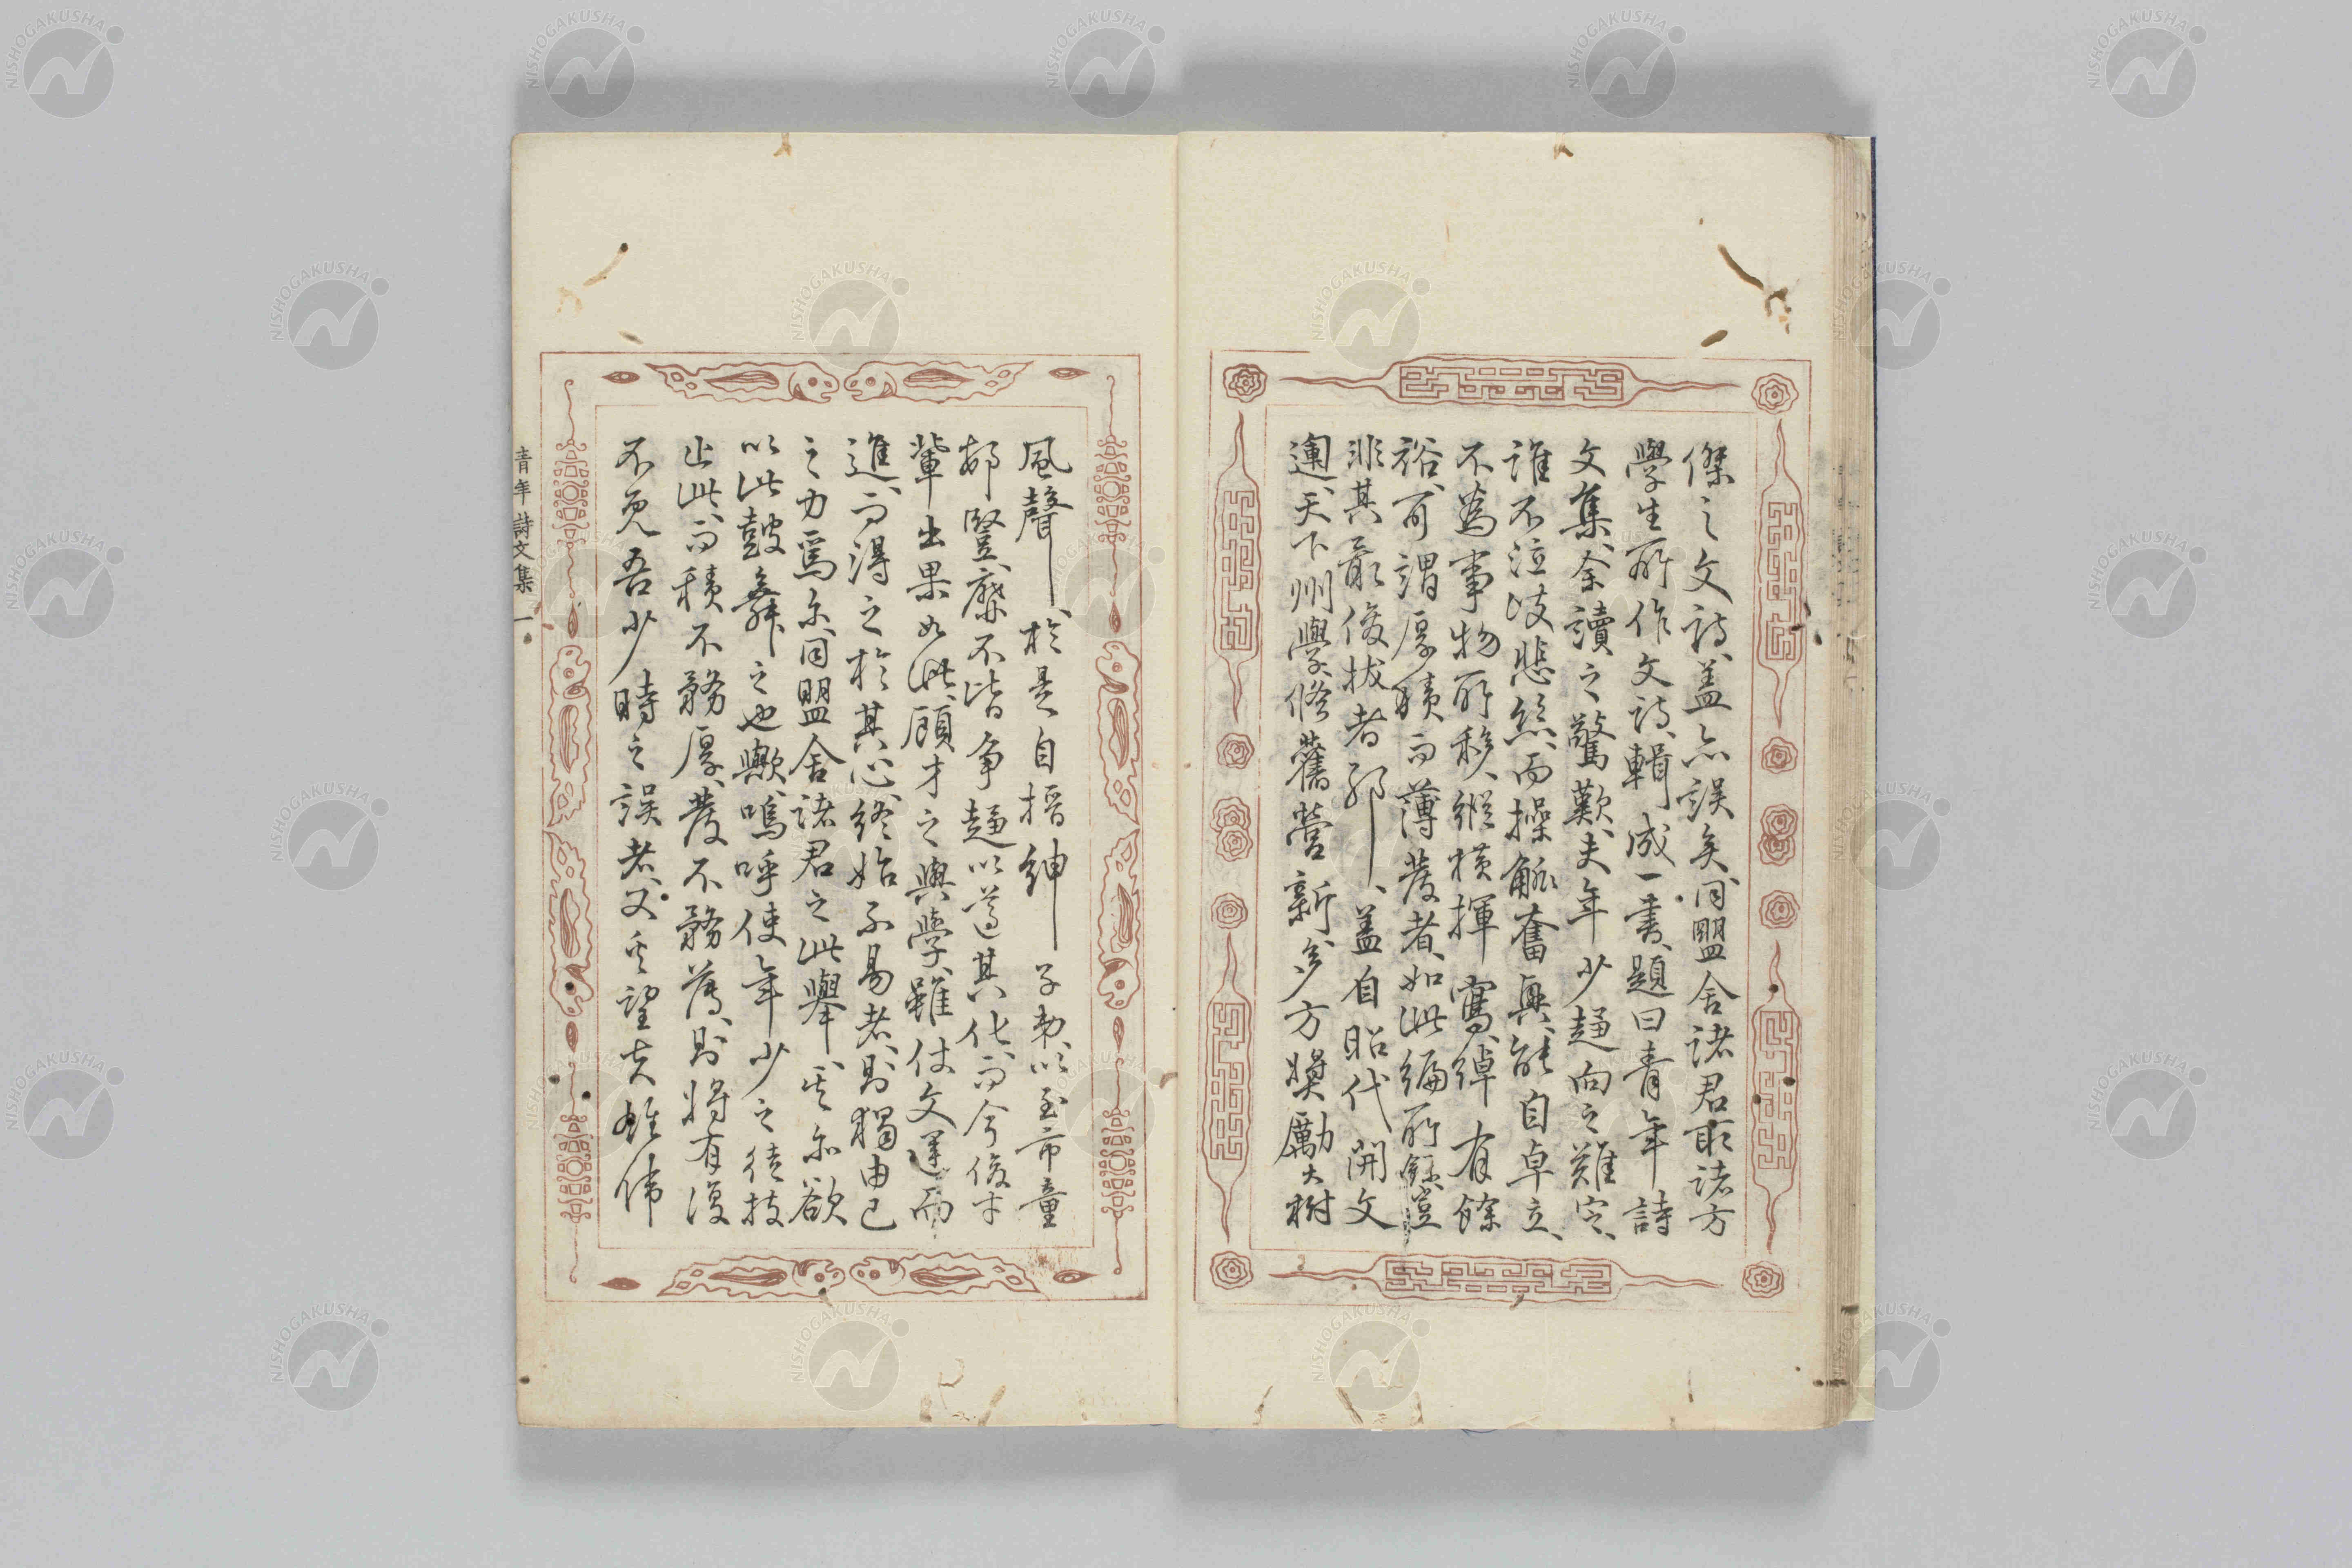 傑之文詩、蓋亦誤矣、同盟舍諸君取諸方
學生所作文詩、輯成一書、題曰青年詩
文集、余讀之驚歎、夫年少趨向之難定、
誰不泣岐悲絲、而操觚奮興、能自卓立、
不為事物所移、縱橫揮寫、綽有餘
裕、可謂厚積而薄發者、如此編所錄、豈
非其最俊拔者耶、蓋自昭代開文
運、天下州學修舊營新、多方奬勵、大樹
風聲、於是自搢紳子弟、以至市童
邨豎、靡不皆爭趨以遵其化、而今俊才
輩出果如此、顧才之與學、雖仗文運而
進、而得之於其心、終始不易者、則獨由己
之力焉尔、同盟舍諸君之此舉、其亦欲
以此鼓舞之也歟、嗚呼使年少之徒技
止此、而積不務厚、發不務薄、則將有復
不免吾少時之誤者、又其望夫雄偉
青年詩文集 一
NISHOGAKUSHA